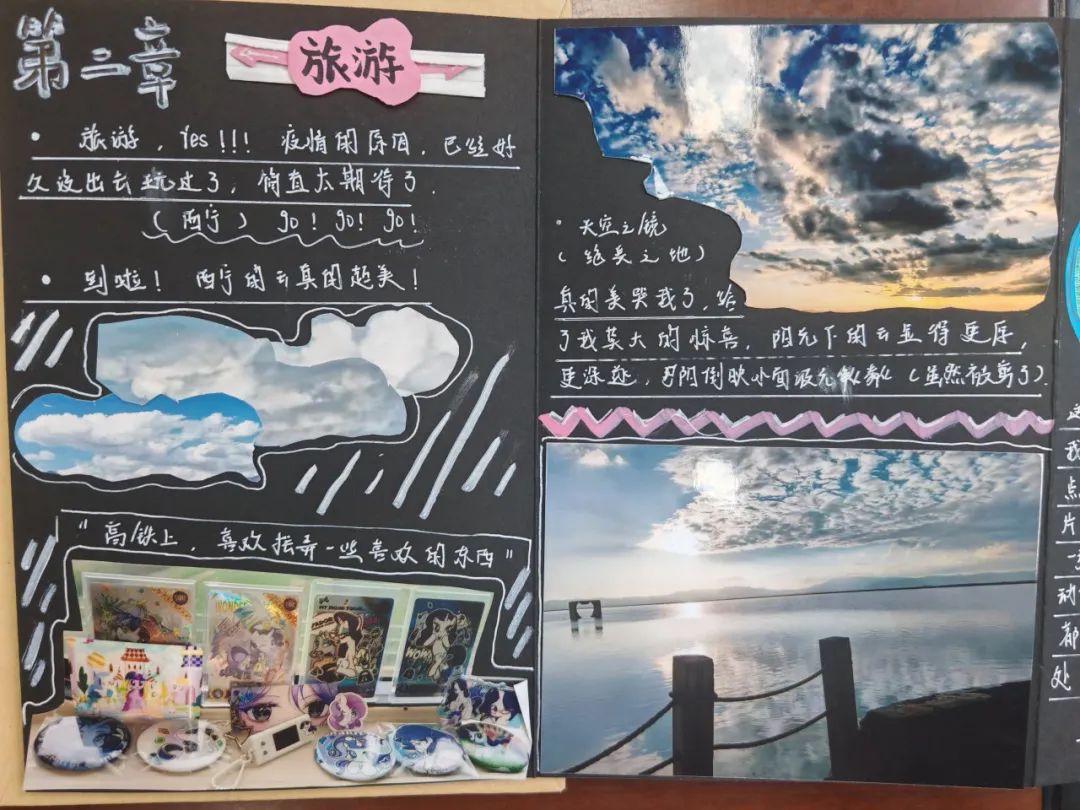 第二章
旅游
• 旅游，Yes!!! 疫情的原因，已经好
久没出去玩过了，简直太期待了．
（西宁） go! go! go!
• 到啦！ 西宁的云真的超美！
"高铁上，喜欢摆弄一些喜欢的东西"
• 天空之镜
（绝美之地）
真的美哭我了，给
了我莫大的惊喜，阳光下的云显得更厚，
更深邃，夕阳倒映水面
（虽然被剪了）
WONDER
我
点
片
了
动
都
处